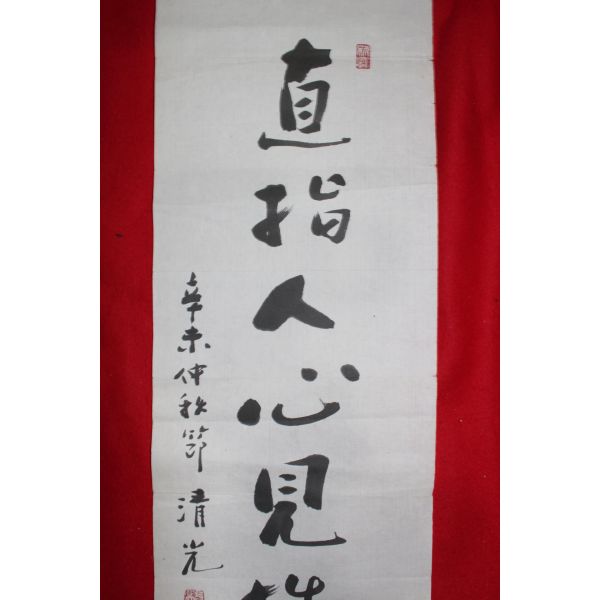 直指人心見性
辛未仲秋節 清光